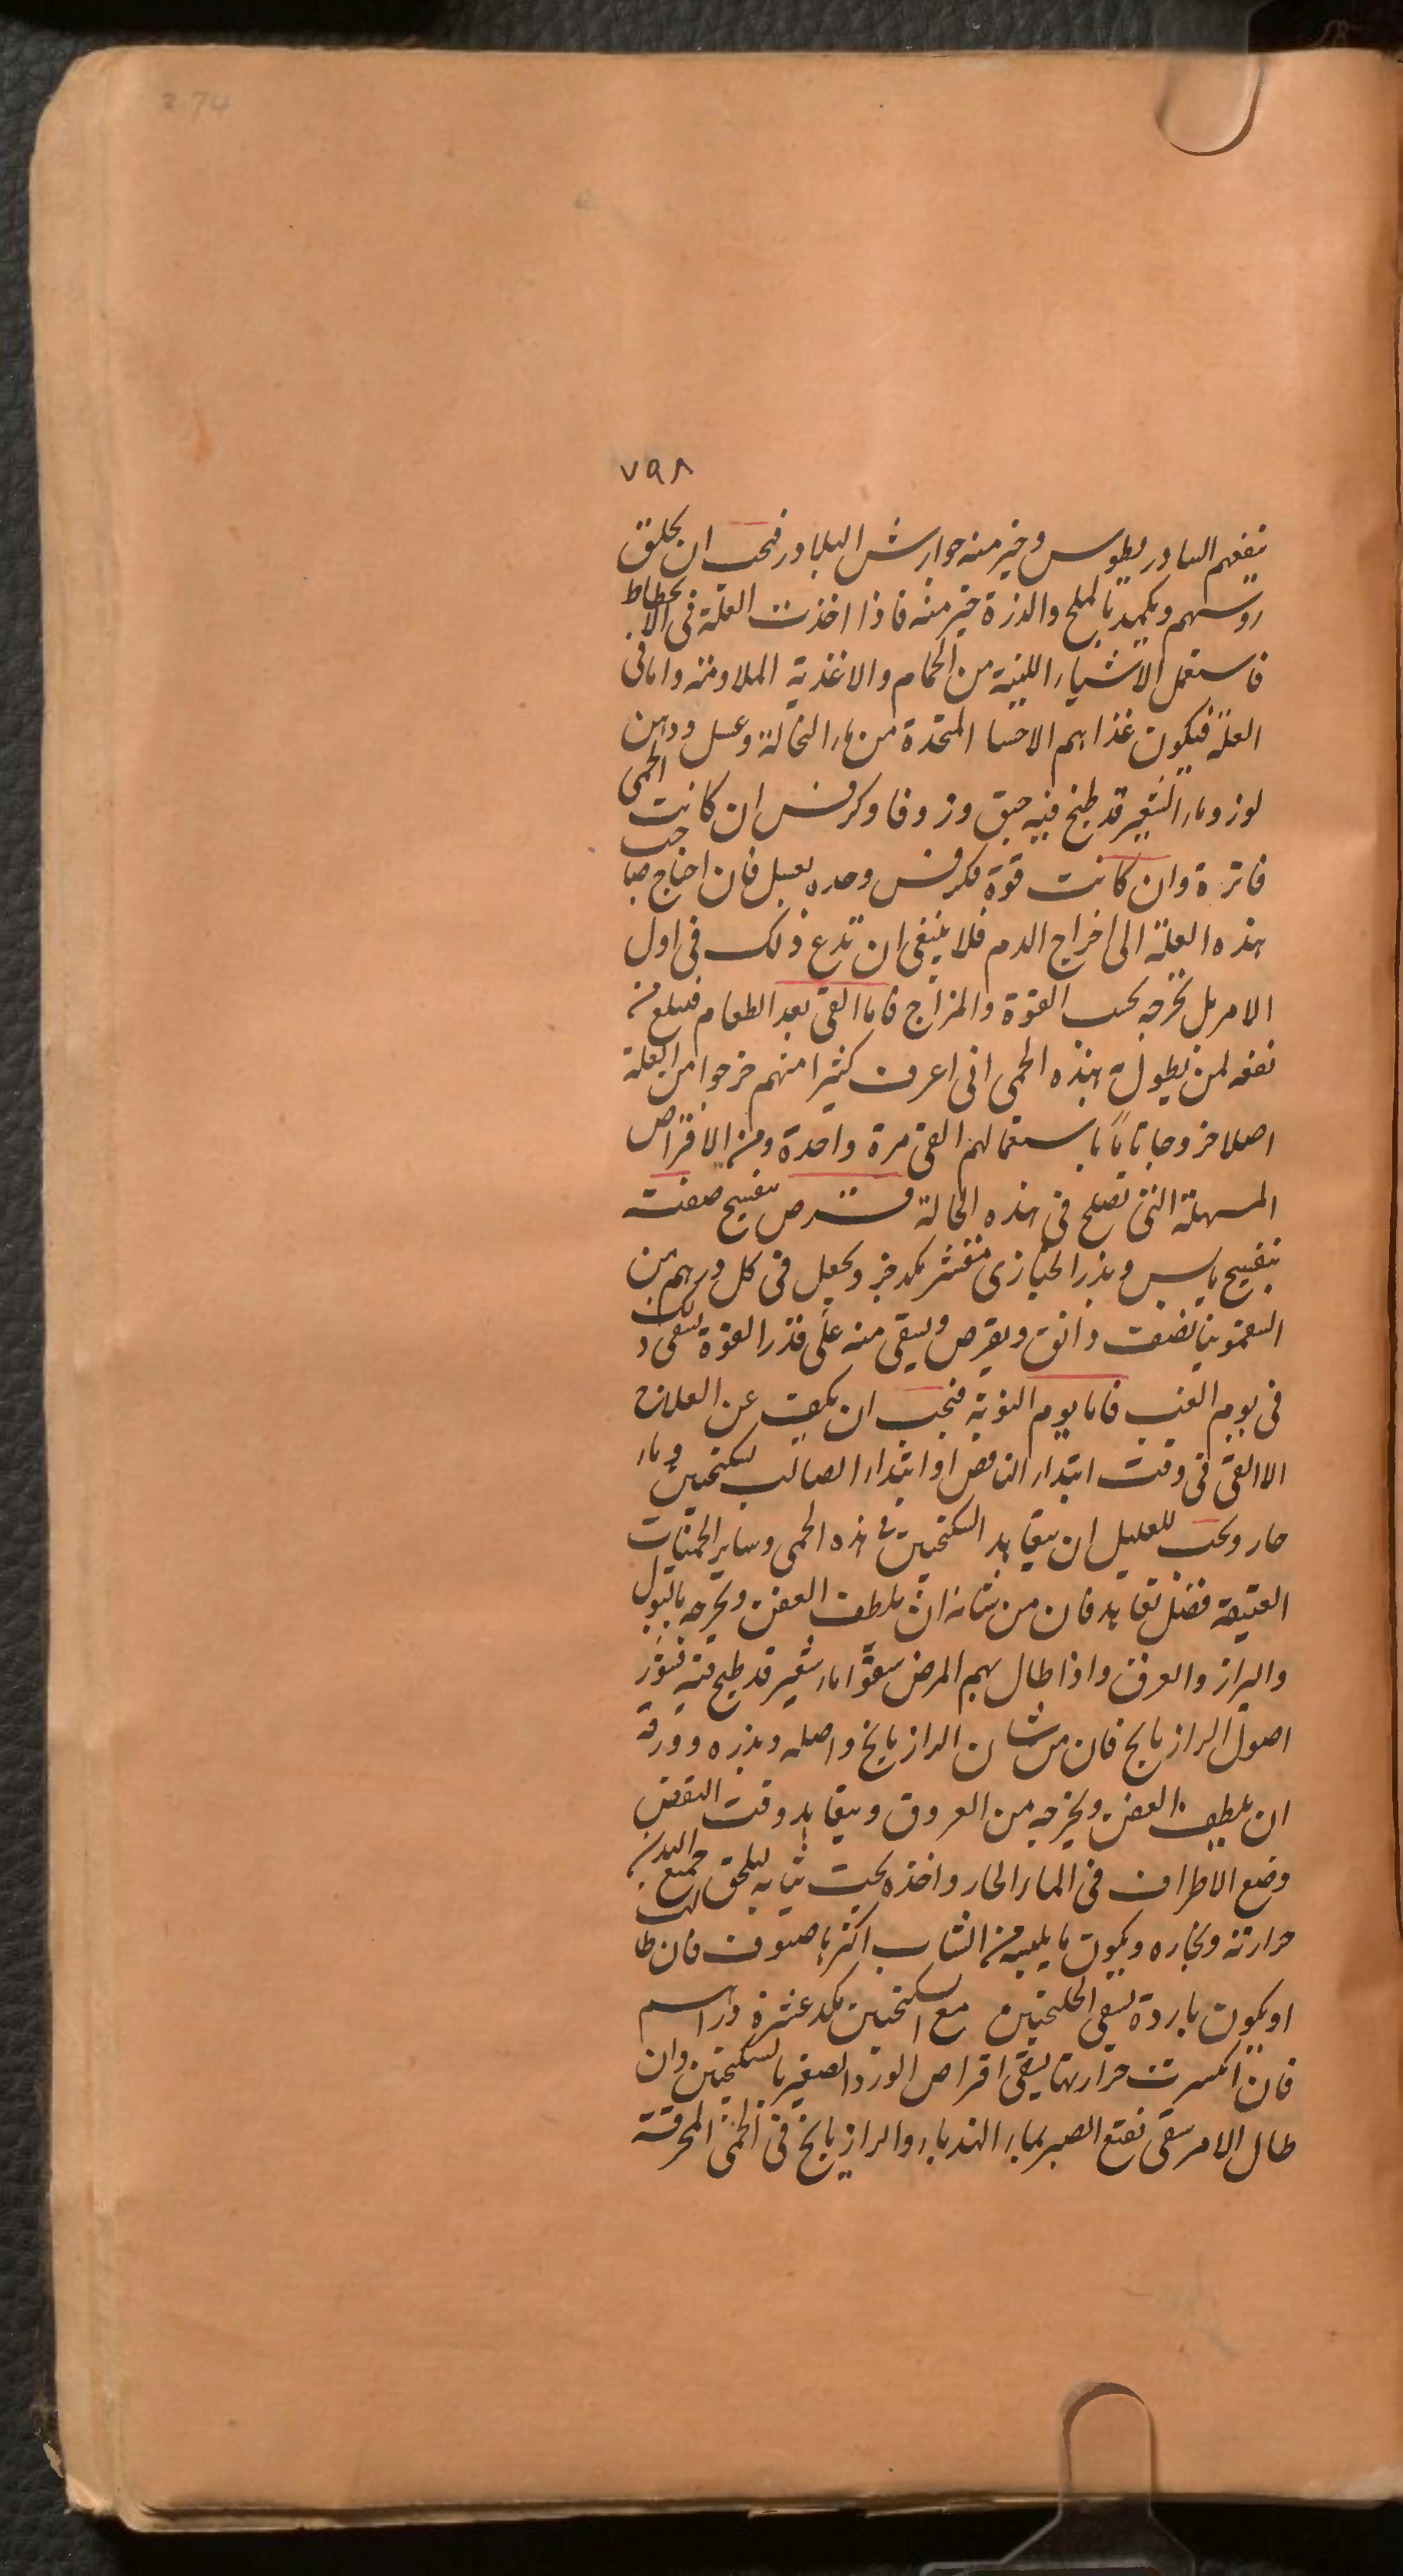 274
٧٩٨
ينفعهم الثيادريطوس وخير منه جوارش البلادر فيجب ان يحلق
روسهم ويكمد بالملح والذرة خير منه فاذا اخذت العلة فى الانحطاط
فاستعمل الاشياء اللينة من الحمام والاغذية الملاومه واما فى
العلة فيكون غذاهم الاحسا المتخذة من ماء النخالة وعسل ودهن
لوز وماء الشعير قد طبخ فيه حبق وزوفا وكرفس ان كانت الحمى
فاترة وان كانت قوة فكرفس وحده بعسل فان احتاج صاحب
هذه العلة الى اخراج الدم فلا ينبغى ان تدع ذلك فى اول
الامر بل تخرجه بحسب القوة والمزاج فاما القئ بعد الطعام فيبلغ من
نفعه لمن يطول به هذه الحمى انى اعرف كثيرا منهم خرجوا من العلة
اصلا خروجا تاما باستعمالهم القئ مرة واحدة ومن الاقراص
المسهلة التى تصلح فى هذه الحالة قرص بنفسج صفته
بنفسج يابس وبذر الخبازى مقشر بكد خر ويجعل فى كل درهم من
السقمونيا نصف دانق ويقرص ويسقى منه على قدر القوة يسقى ذلك
فى يوم الغب فاما يوم النوبة فيجب ان يكف عن العلاج
الا القئ فى وقت ابتداء النافض او ابتداء الصالب بسكنجبين وماء
حار ويجب للعليل ان يتعاهد السكنجبين فى هذه الحمى وساير الحميات
العتيقة فضل تعاهد فان من شانه ان يلطف العفن ويخرجه بالبول
والبراز والعرق واذا طال بهم المرض سقوا ماء شعير قد طبخ فيه قشور
اصول الرازيانج فان من شان الرازيانج واصله وبذره وورقه
ان يلطف العفن ويخرجه من العروق ويتعاهد وقت النفض
وضع الاطراف فى الماء الحار واخذه تحت ثيابه ليلحق جميع البدن
حرارته وبخاره ويكون ما يلبسه من الثياب اكثرها صوف فان طالت
او يكون باردة يسقى الجلنجبين مع السكنجبين بكد عشرة دراهم
فان انكسرت حرارتها يسقى اقراص الورد الصغير بالسكنجبين وان
طال الامر سقى نقيع الصبر بماء الهندباء والرازيانج فى الحمى المحرقة